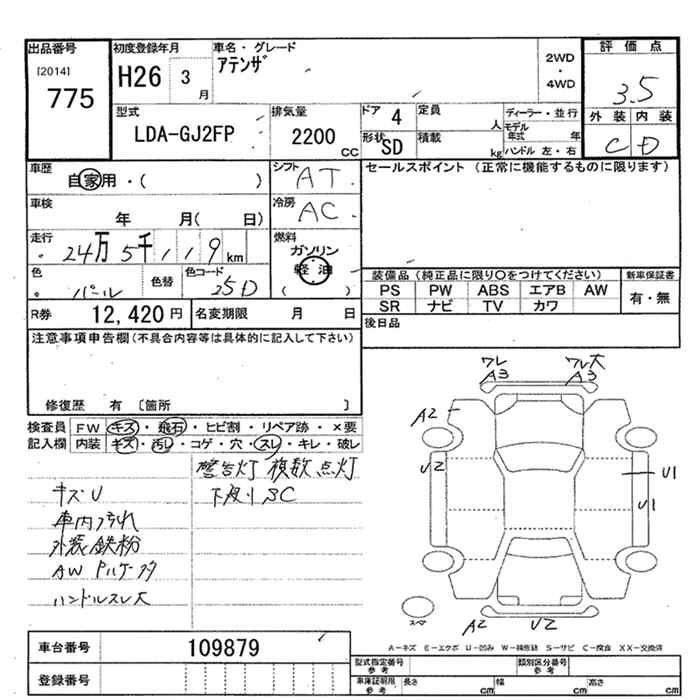 出品番号
[2014]
775
初度登録年月
H26 3 月
車名・グレード
アテンザ
2WD
・
4WD
評価点
3.5
外装 内装
C D
型式
LDA-GJ2FP
排気量
2200 CC
ドア 4
形状 SD
定員 人
積載 kg
ディーラー・並行
モデル年式 年
ハンドル 左・右
車歴
自家用・( )
シフト
AT
セールスポイント (正常に機能するものに限ります)
車検
年 月( 日)
冷房
AC
走行
24万5千119km
燃料
ガソリン
軽油
( )
色
パール
色替
色コード
25D
装備品 (純正品に限り○をつけてください)
新車保証書
PS PW ABS エアB AW
有・無
SR ナビ TV カワ
R券 12,420円
名変期限 月 日
後日品
注意事項申告欄(不具合内容等は具体的に記入して下さい)
修復歴 有 〔箇所 〕
検査員
記入欄
FW キズ・飛石・ヒビ割・リペア跡・×要
内装 キズ・汚し・コゲ・穴・スレ・キレ・破レ
警告灯 複数点灯
キズU
下廻りSC
車内汚れ
外装鉄粉
ハンドルスレ大
ワレ
A3
ワレ大
A3
A2
U2
U1
U1
A2
U2
スペア
A-キズ E-エクボ U-凹み W-補修跡 S-サビ C-腐食 XX-交換済
車台番号 109879
登録番号
型式指定番号
参考
類別区分番号
参考
車庫証明用
参考
長さ cm 幅 cm 高さ cm